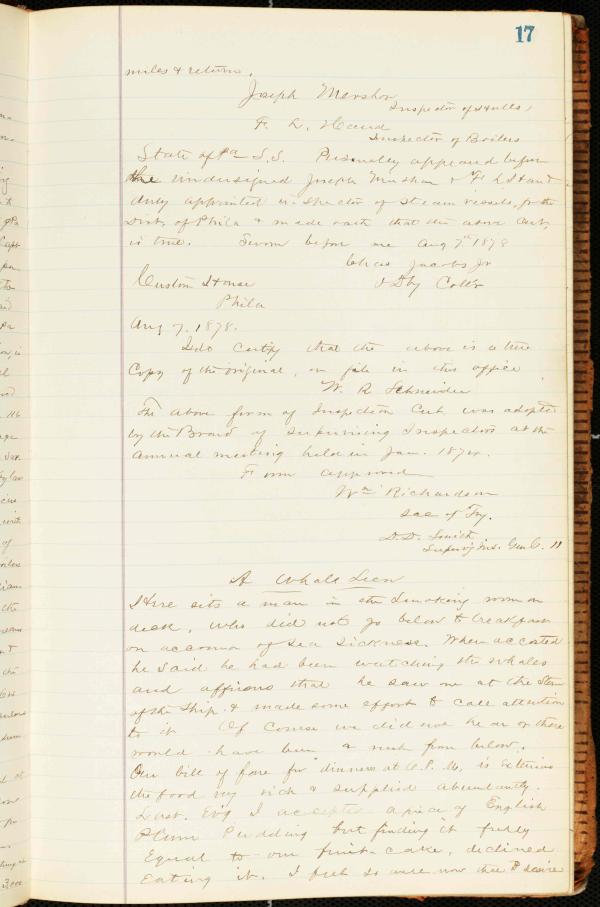 17
miles & returns.
Joseph Marshon
Inspector of Hulls,
F. L. Hand
Inspector of Boilers
State of Pa S.S. Personally appeared before
the undersigned Joseph Mershon & F L Hand
duly appointed inspector of steam vessels, for the
Dist. of Phila & made oath that the above Cert,
is true. Sworn before me Aug 7th 1878
Chas Jacobs Jr
Dty Coltr
Custom House
Phila
Aug 7. 1878.
I do Certify that the above is a true
Copy of the original, on file in this office
W. R Schneider
The above form of Inspection Cert was adopted
by the Board of Supervising Inspectors at the
annual meeting held in Jan. 1874.
Form approved
Wm Richardson
Sec of Try.
D. D. Smith
Superv'g Ins. Genl.
A Whale Seen
Here sits a man in the Smoking room on
deck, who did not go below to breakfast
on account of Sea Sickness. When accosted
he said he had been watching the whales
and affirms that he saw one at the Stern
of the Ship, & made some effort to call attention
to it Of Course we did not hear or there
would have been a rush from below.
Our bill of fare for dinners at 6. P. M. is Extensive
the food very rich & supplied abundantly.
Last. Ev'g I accepted a piece of English
Plum Pudding but finding it fully
Equal to our fruit-cake, declined
Eating it. I feel so well now that I desire